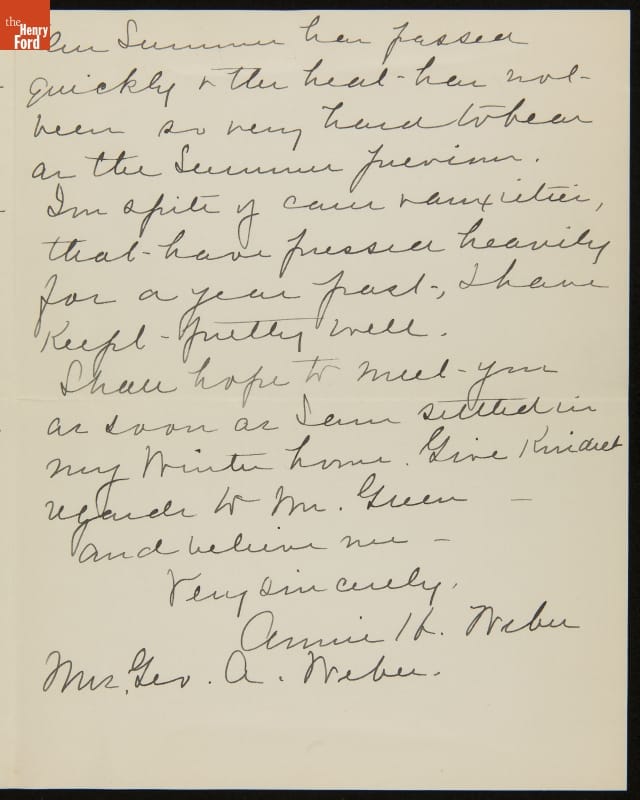 the
Henry
Ford
Summer has passed
quickly & the heat has not
been so very hard to bear
as the Summer previous.
In spite of care & anxieties,
that have pressed heavily
for a year past, I have
Keept pretty well.
Shall hope to meet you
as soon as I am settled in
my Winter home. Give Kindest
regards to Mr. Green
and believe me –
Very sincerely,
Annie H. Weber
Mrs. Geo. A. Weber.